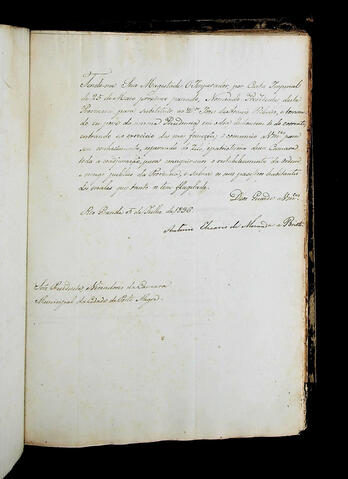 Tendo-me Sua Magestade O Imperador, por Carta Imperial
de 25 de Maio proximo passado, Nomeado Presidente desta
Provincia para substituir ao Jose de Araujo Ribeiro, e toman-
do eu posse da mesma Presidencia em o dia de hontem 4 do corrente
entrando no exercicio das suas funcções, o communico a Vm.ces para
seu conhecimento, esperando do zelo, e patriotismo dessa Camara
toda a coadjuvação, para conseguir-se o restabelecimento da ordem
e socego publico da Provincia, e
os males que tanto a tem flagelado.
Deos Guarde a Vm.ces
Rio Grande 5 de Julho de 1836
Antonio Elzeario de Miranda e Britto
Srs Presidente, e Vereadores da Camara
Municipal da Cidade de Porto Alegre.